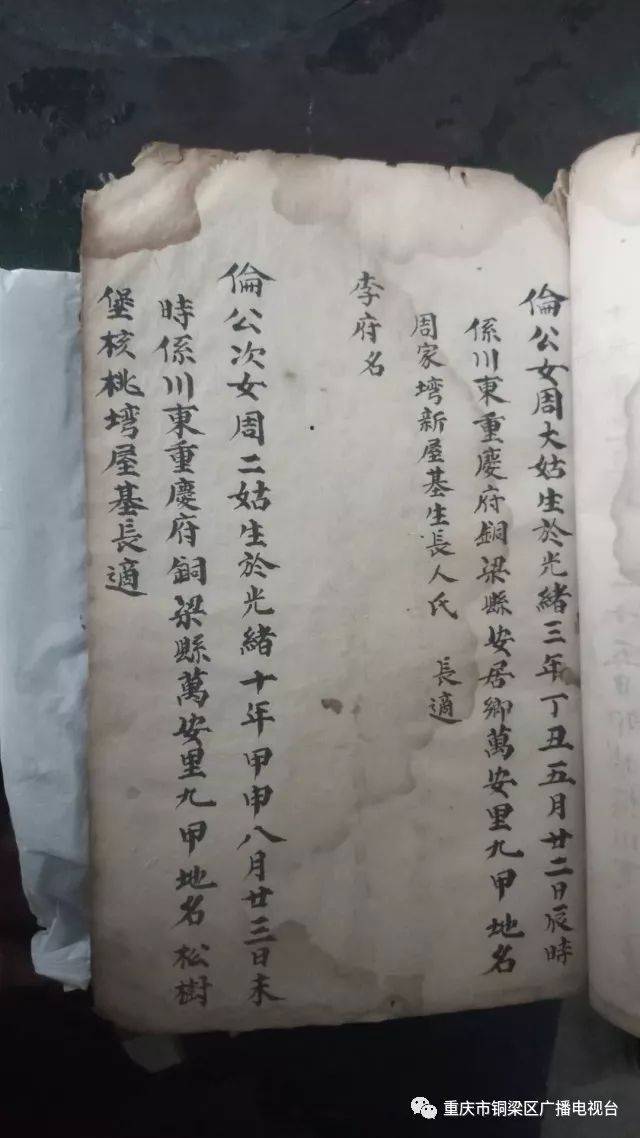 倫公女周大姑生於光緒三年丁丑五月廿二日辰時
係川東重慶府銅梁縣安居鄉萬安里九甲地名
周家塆新屋基生長人氏 長適
李府名
倫公次女周二姑生於光緒十年甲申八月廿三日未
時係川東重慶府銅梁縣萬安里九甲地名松樹
堡核桃塆屋基長適
重庆市铜梁区广播电视台